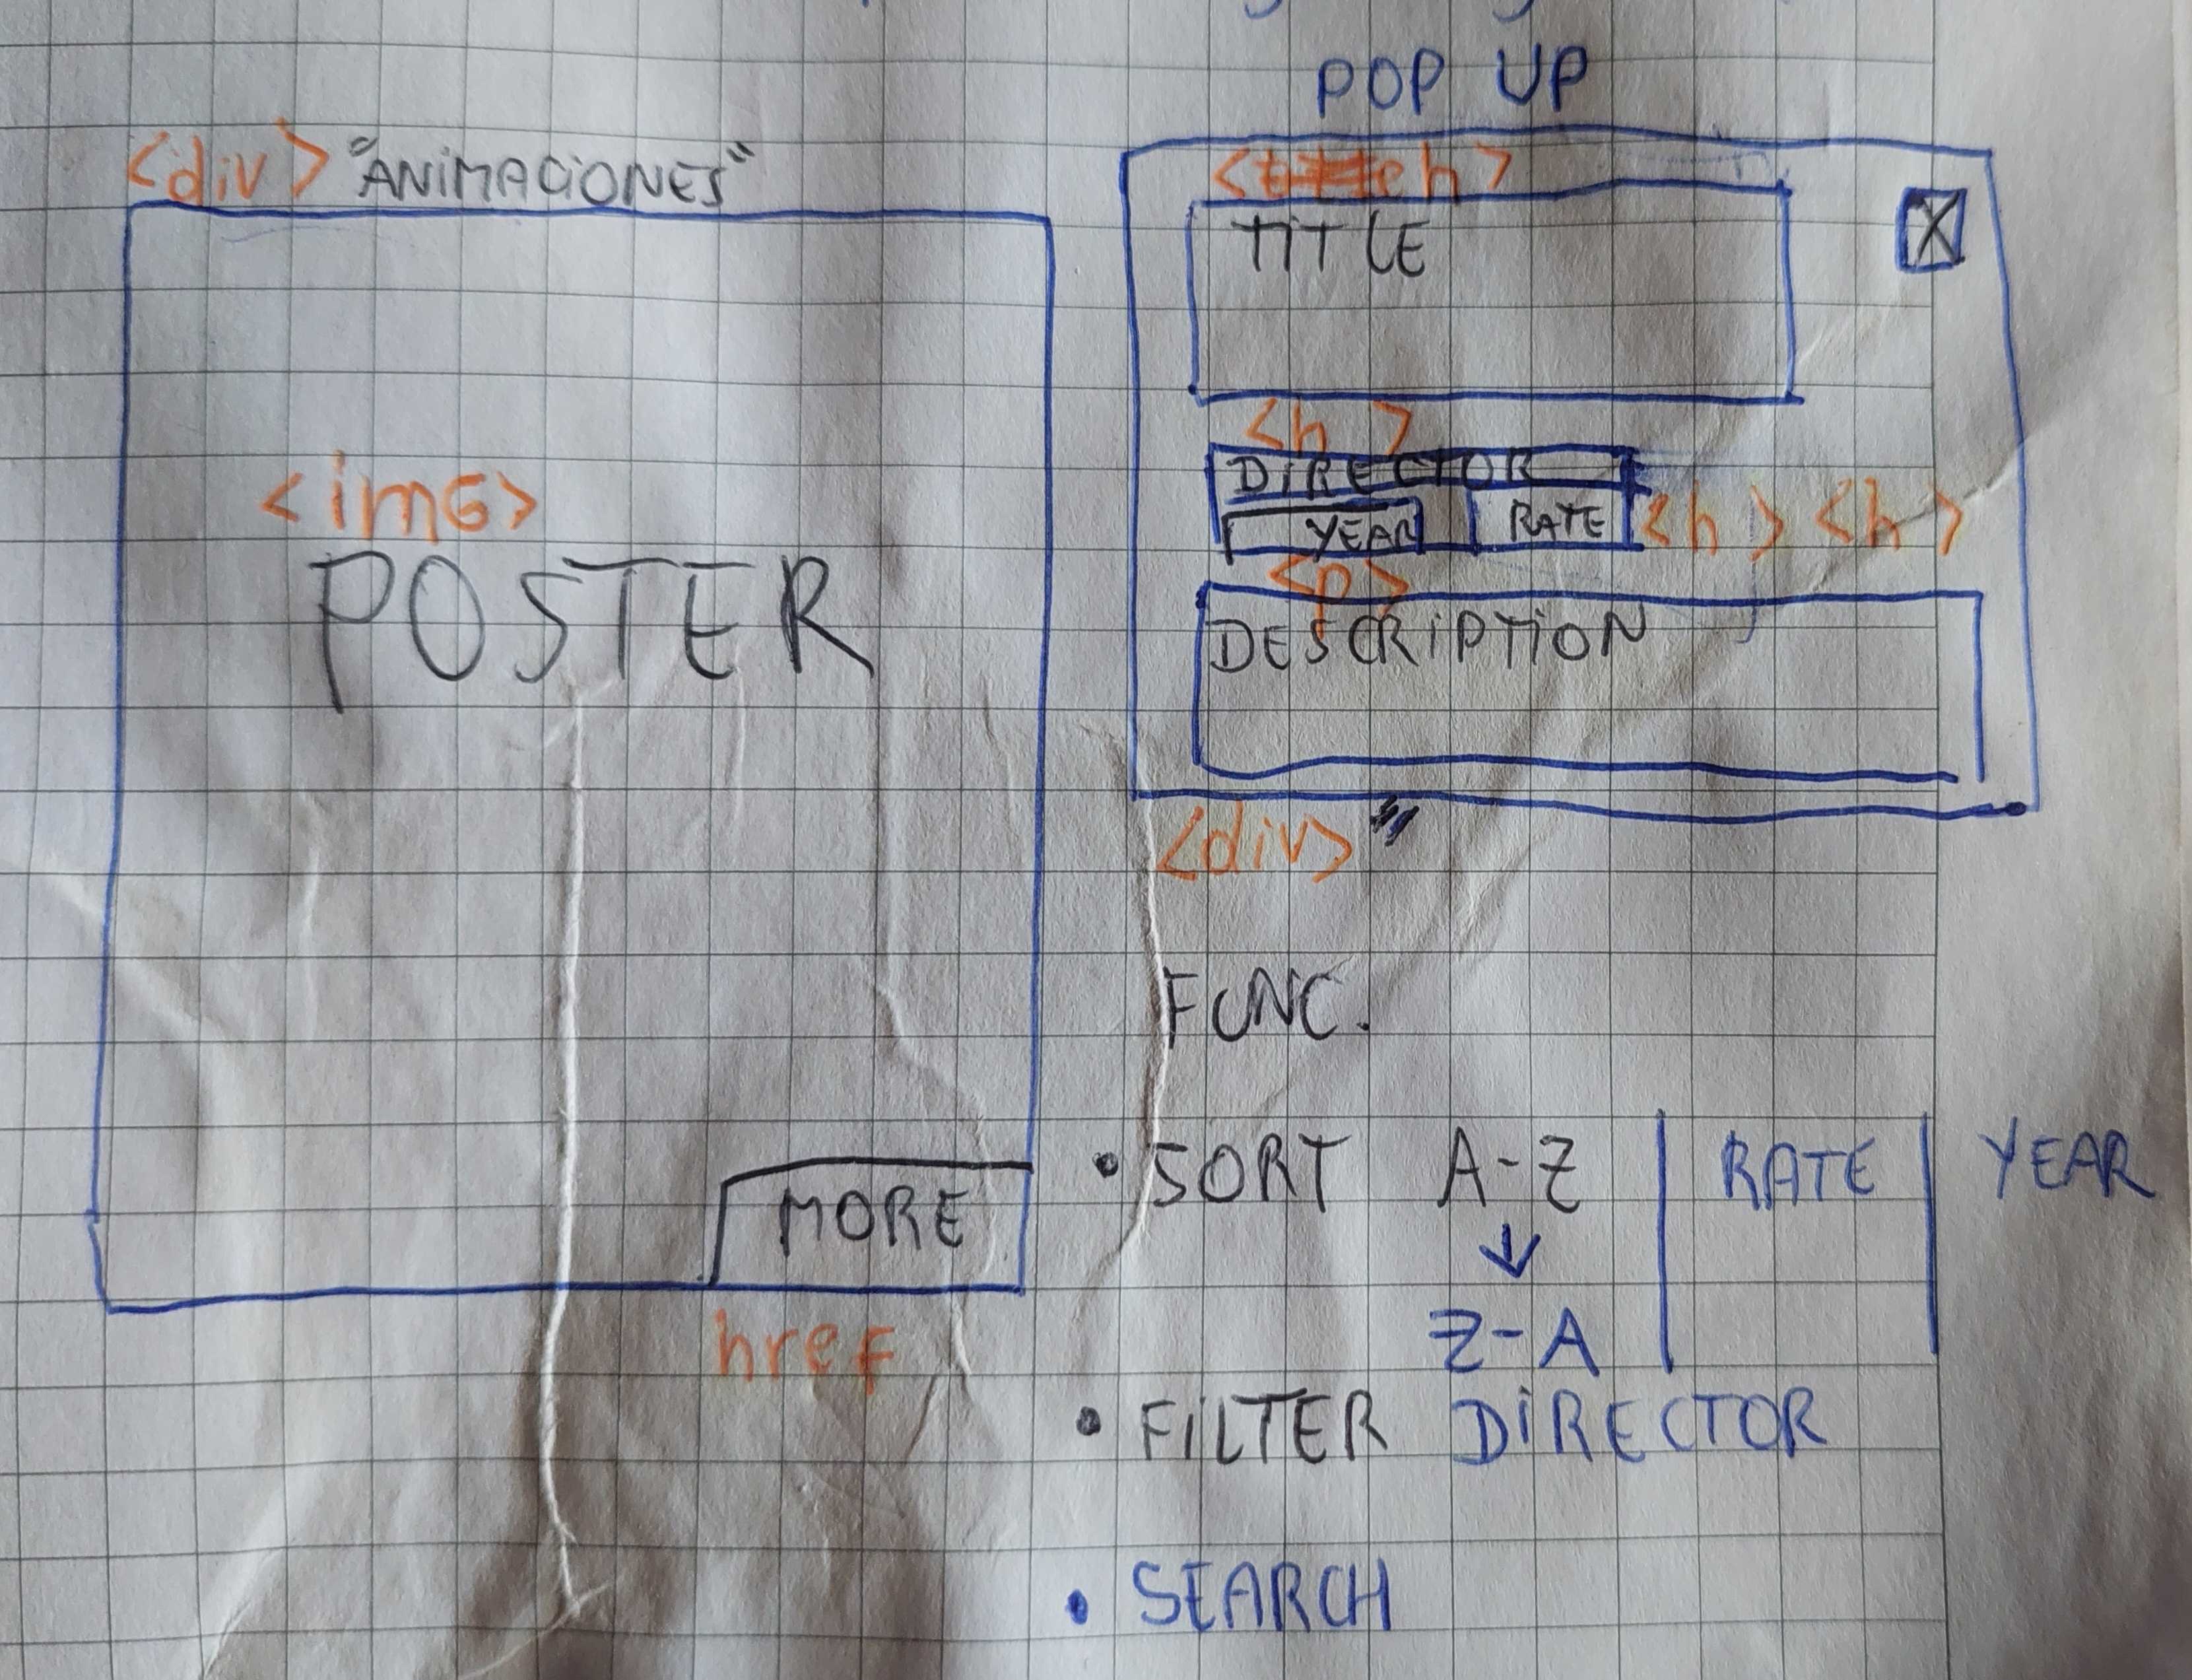 <div> "ANIMACIONES"
<imG>
POSTER
MORE
href
POP UP
<h>
TITLE
X
<h>
DIRECTOR
YEAR RATE <h> <h>
<p>
DESCRIPTION
<div>
FUNC.
• SORT A-Z | RATE | YEAR
↓
Z-A
• FILTER DIRECTOR
• SEARCH